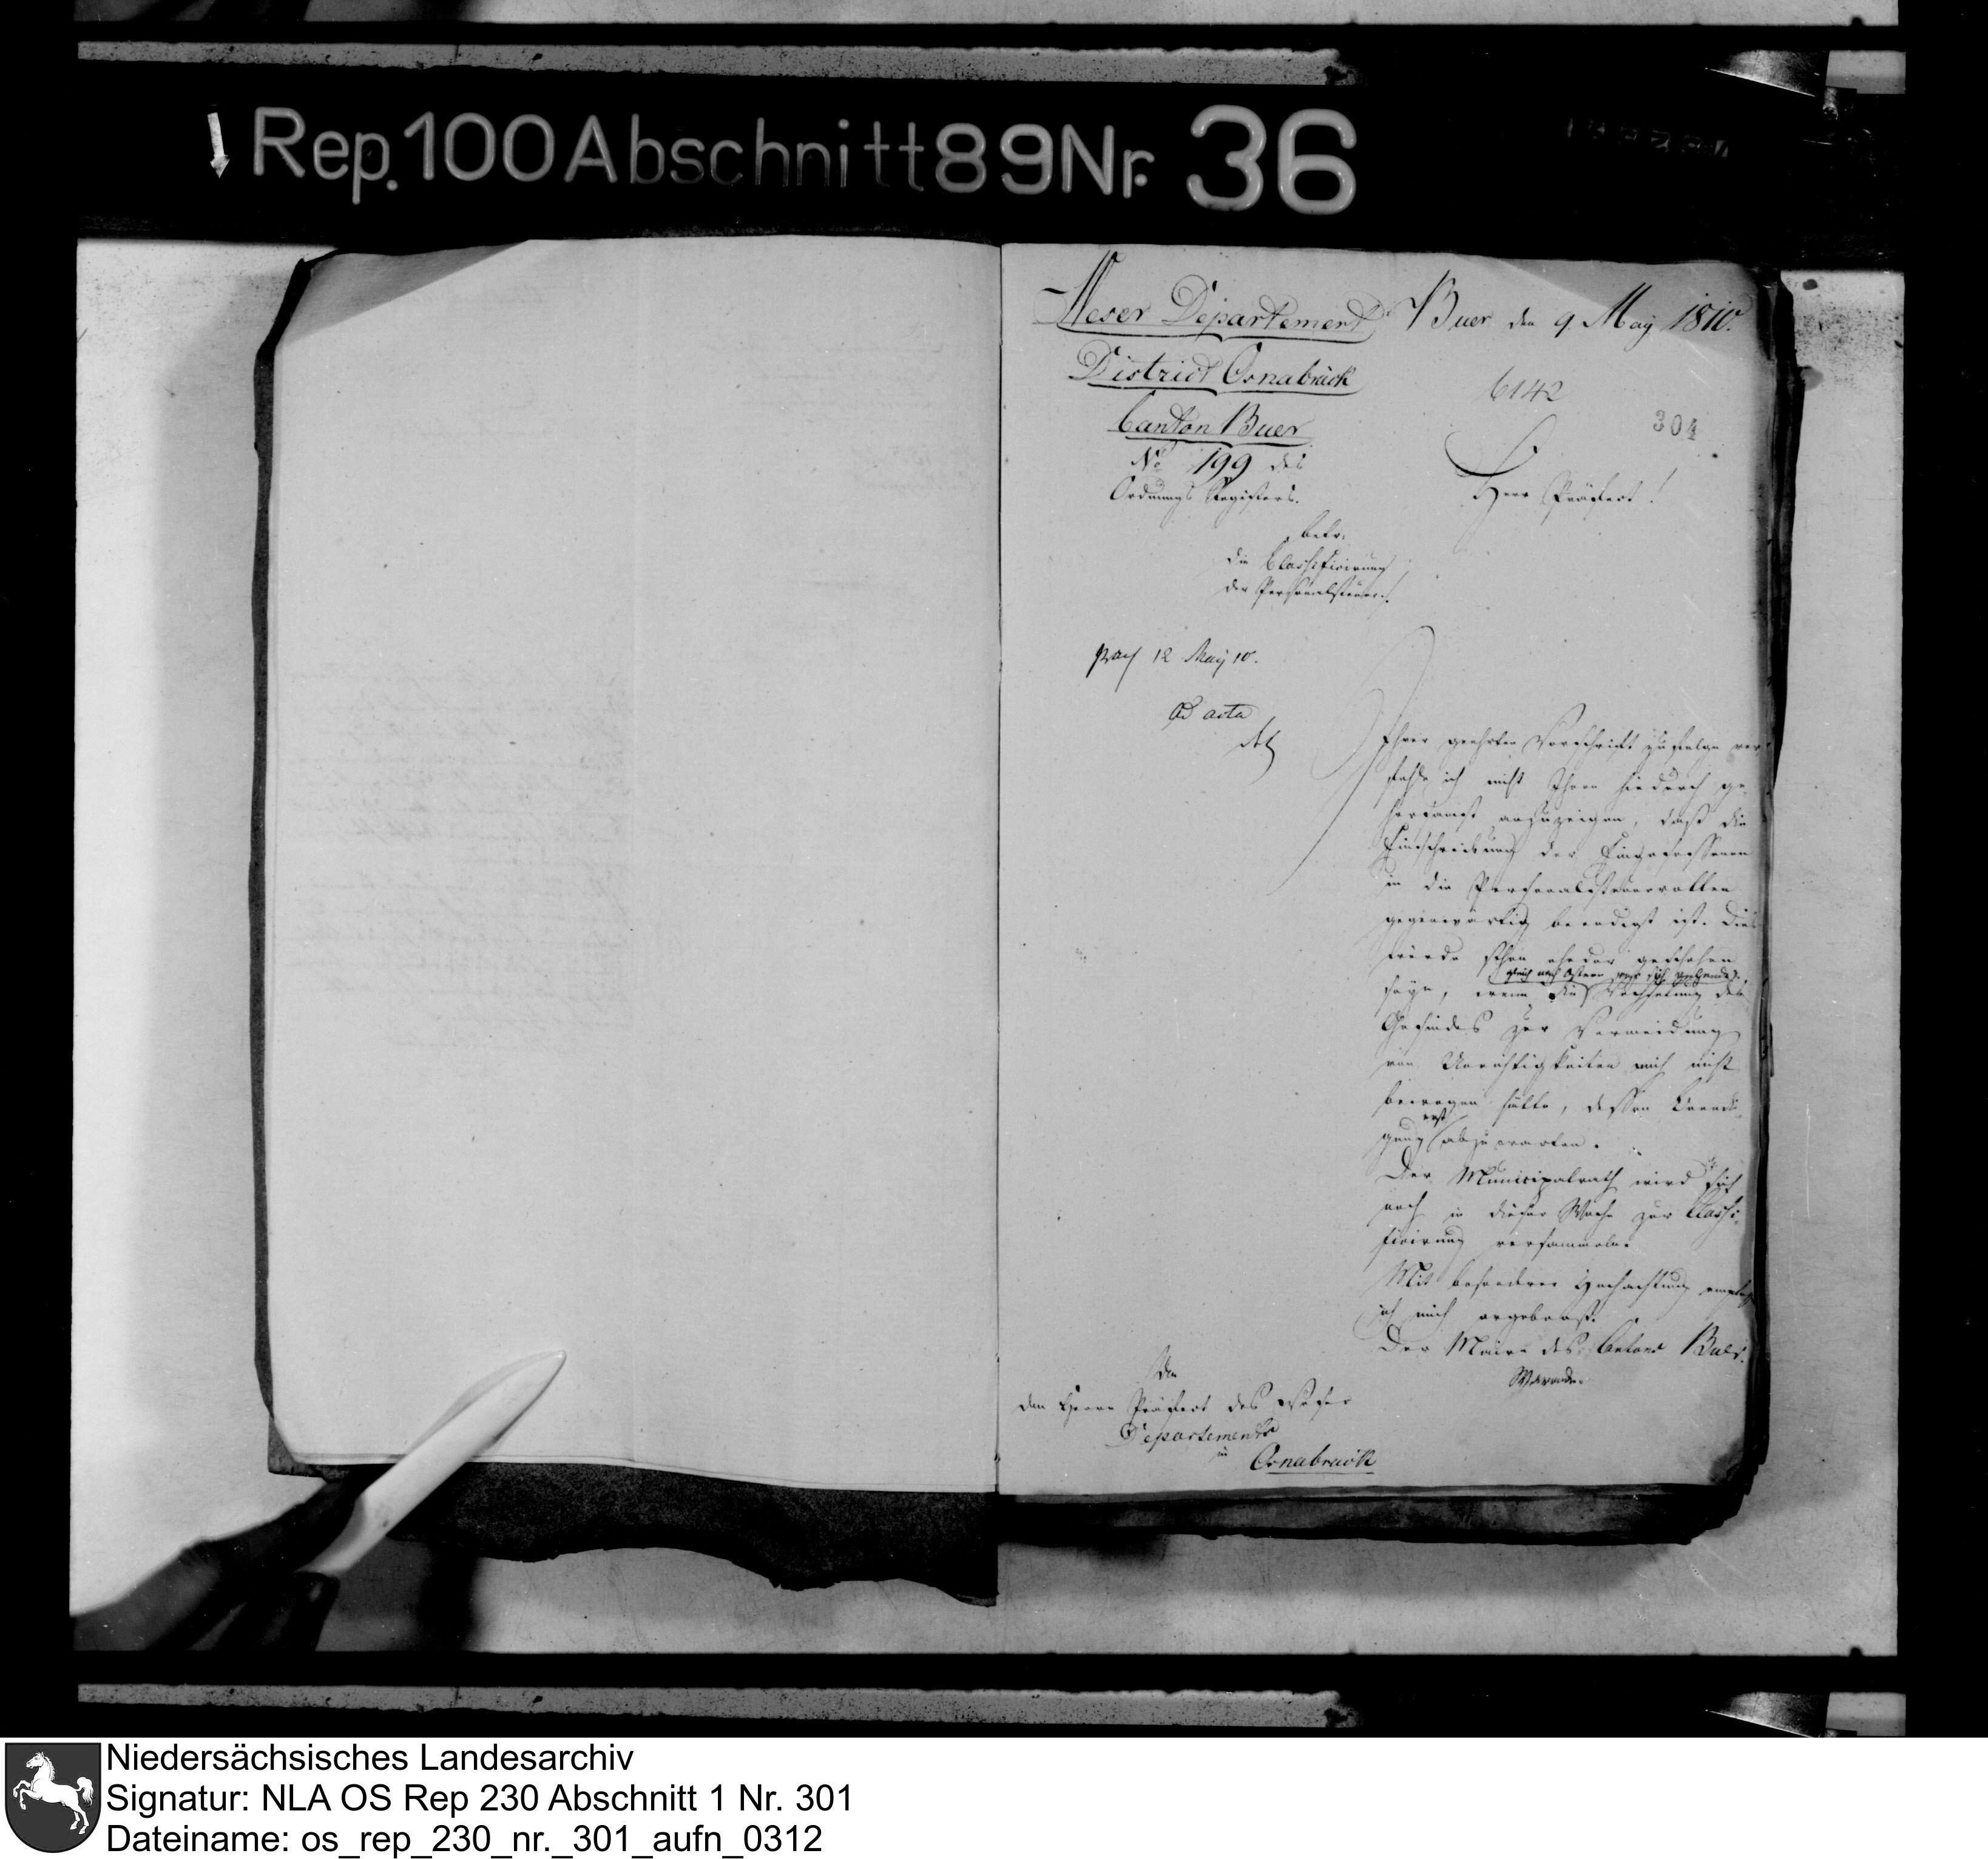 Rep. 100 Abschnitt 89 Nr. 36
Weser Departement
District Osnabrück
Canton Buer
No 199 des
Ordnungs Registers.
betr.
die Classificirung
der Personalsteuer.
praes 12 May 10.
ad acta
Buer den 9. May 1810.
6142
304
Herr Präfect!
Ihrer geehrten Vorschrift zufolge ver¬
fehle ich nicht Ihnen hiedurch ge¬
horsamst anzuzeigen, daß die
Einschreibung der Eingesessenen
in die Personalsteuerrollen
gegenwärtig beendigt ist. Dies
würde schon ehedar geschehen
gleich nach Ostern vor sich gehende
seyn, wenn die Wechselung des
Gesindes zur Vermeidung
von Unrichtigkeiten mich nicht
bewogen hätte, dessen Beendi¬
erst
gung abzuwarten.
Der Municipalrath wird sich
noch in dieser Woche zur Classi¬
ficirung versammeln.
Mit besonderer Hochachtung empfehle
ich mich ergebenst.
Der Maire des Cantons Buer.
An
den Herrn Präfect des Weser
Departements
in
Osnabrück
Niedersächsisches Landesarchiv
Signatur: NLA OS Rep 230 Abschnitt 1 Nr. 301
Dateiname: os_rep_230_nr._301_aufn_0312